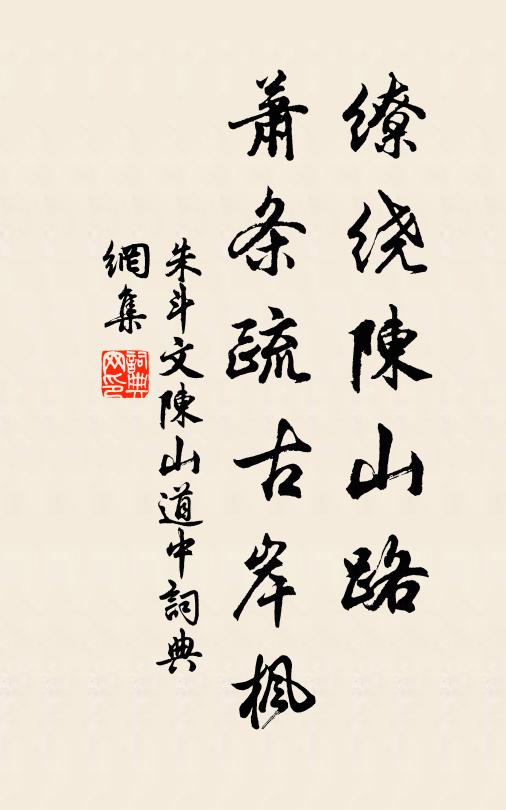 缭绕陳山路
萧条疏古岸楓
朱斗文陳山道中詞典
網集
詞典网印